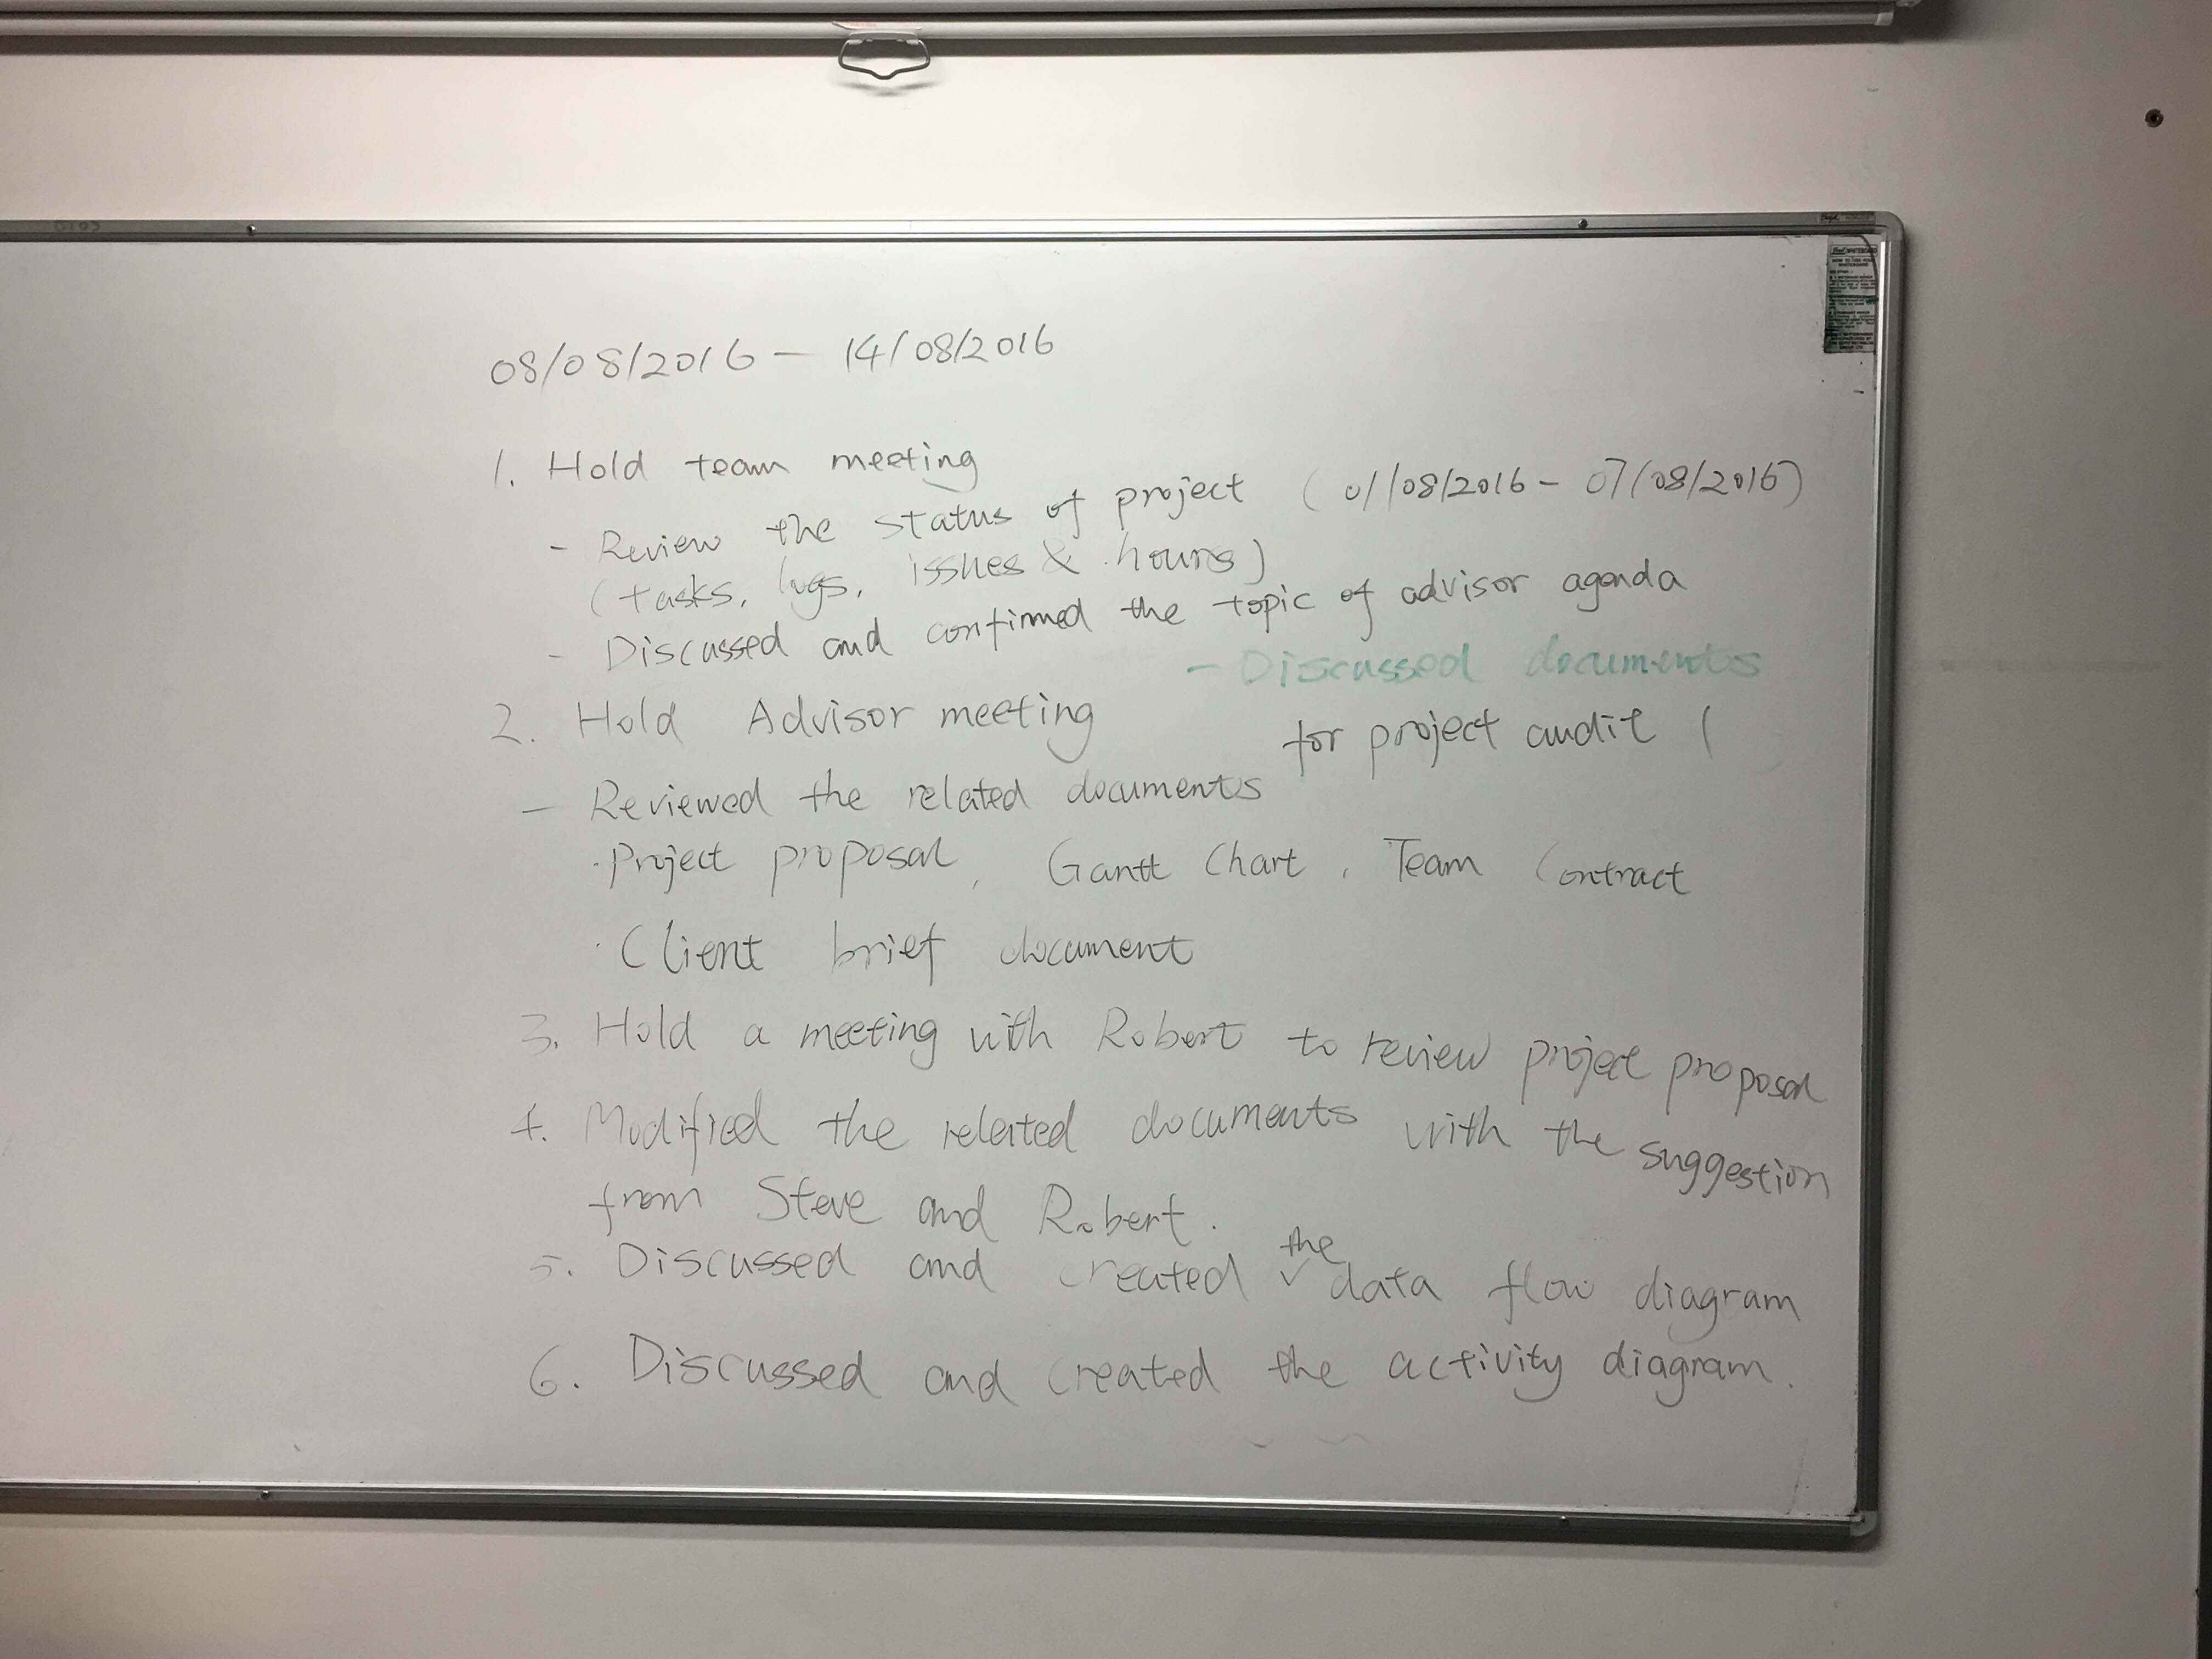 08/08/2016 — 14/08/2016
1. Hold team meeting
- Review the status of project (01/08/2016 - 07/08/2016)
(tasks, logs, issues & hours)
- Discussed and confirmed the topic of advisor agenda
- Discussed documents
for project audit (
2. Hold Advisor meeting
- Reviewed the related documents
· Project proposal, Gantt Chart, Team Contract
· Client brief document
3. Hold a meeting with Robert to review project proposal
4. Modified the related documents with the suggestion
from Steve and Robert.
5. Discussed and created the data flow diagram
6. Discussed and created the activity diagram.